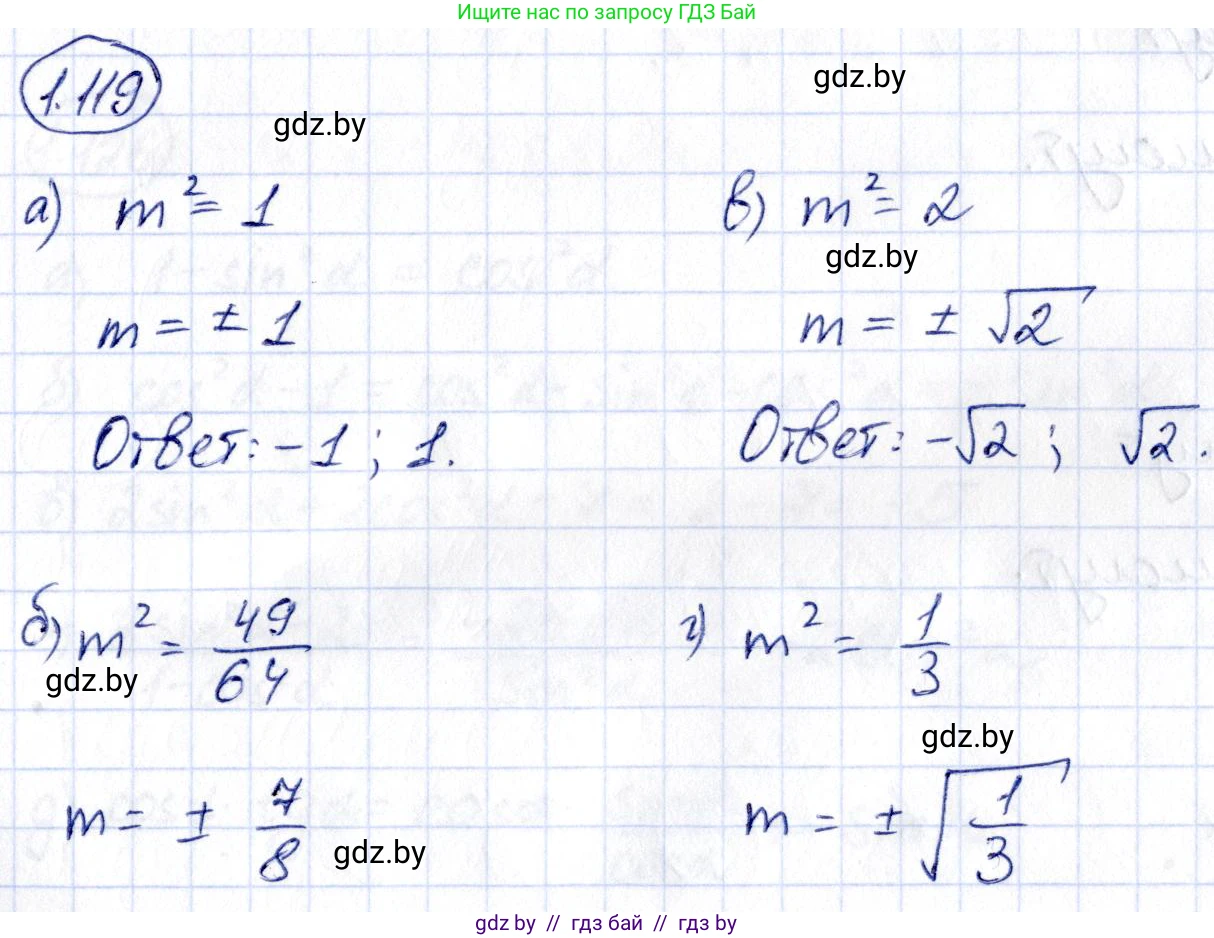 Ищите нас по запросу ГДЗ Бай
1.119
gdz.by
gdz.by
а) m² = 1
m = ± 1
Ответ: -1 ; 1.
в) m² = 2
gdz.by
m = ± √2
Ответ: -√2 ; √2.
б) m² = 49/64
gdz.by
m = ± 7/8
gdz.by
г) m² = 1/3
gdz.by
m = ± √(1/3)
gdz.by // гдз бай // гдз by